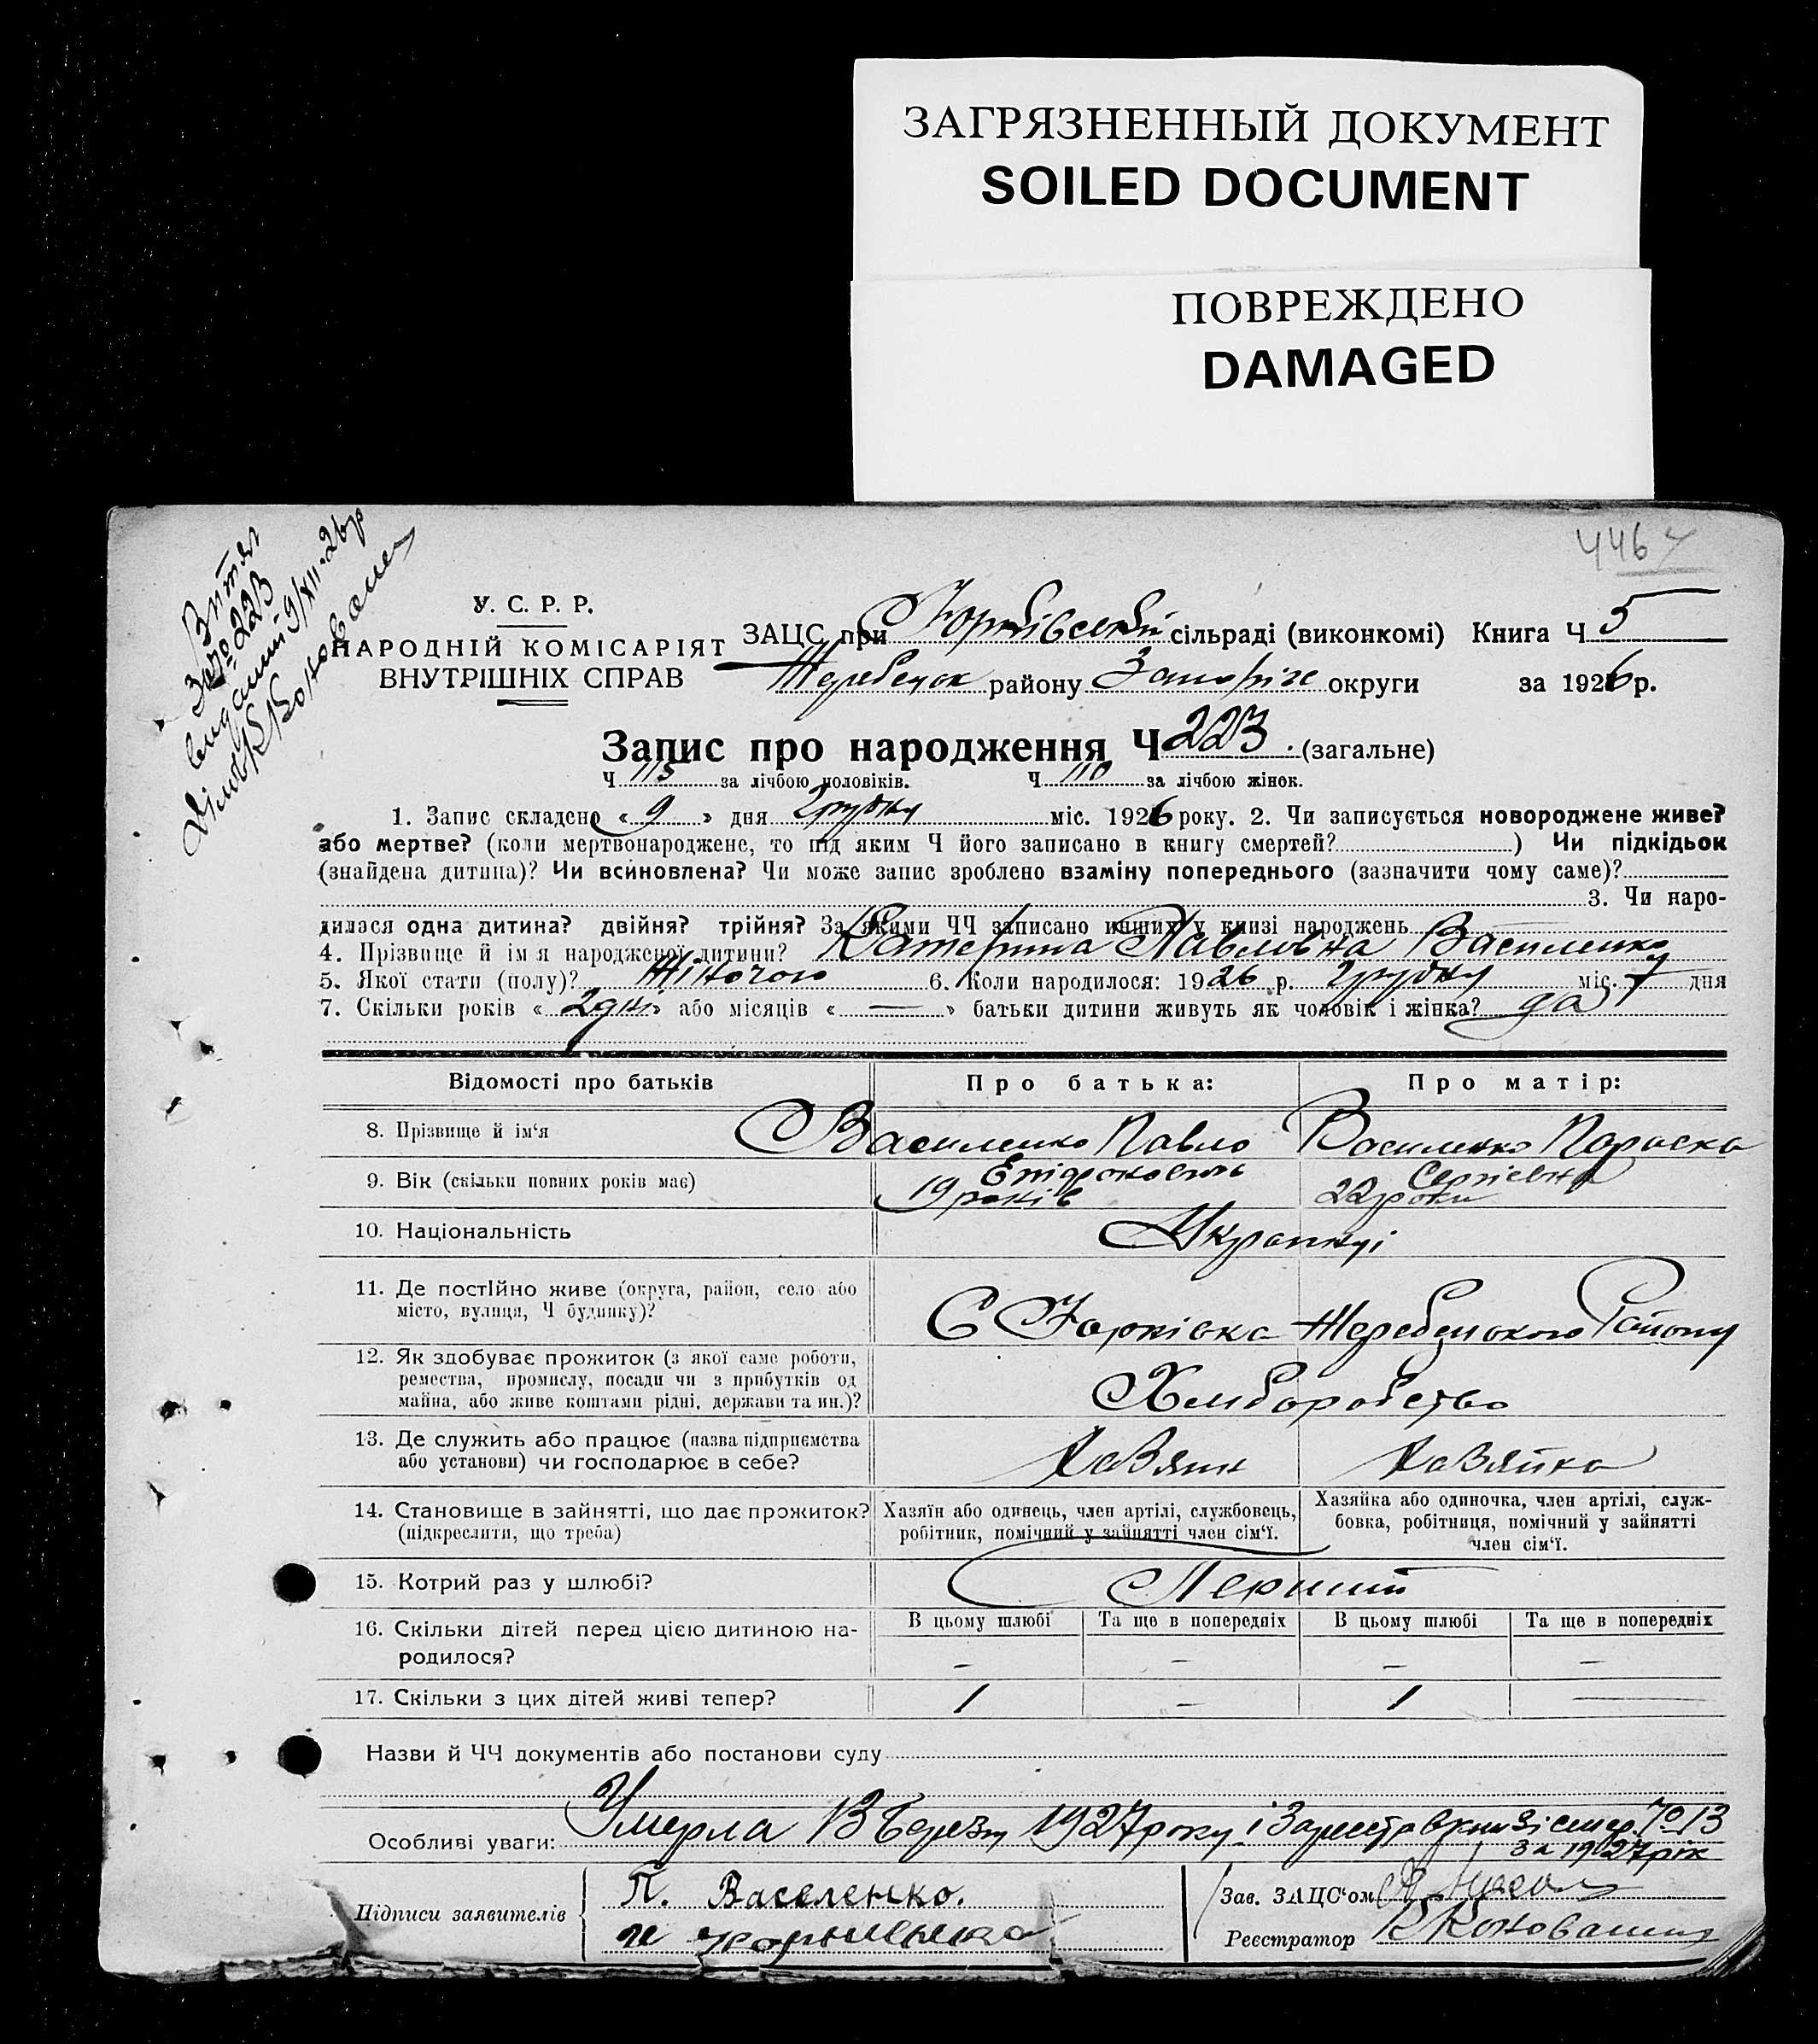 ЗАГРЯЗНЕННЫЙ ДОКУМЕНТ
SOILED DOCUMENT
ПОВРЕЖДЕНО
DAMAGED
446
Витяг
За № 223
виданий 9/XII-26р
У. С. Р. Р.
НАРОДНІЙ КОМІСАРІЯТ
ВНУТРІШНІХ СПРАВ
ЗАЦС при Юрківській сільраді (виконкомі) Книга Ч 5
Жеребецьк району Запоріж округи за 1926 р.
Запис про народження Ч 223. (загальне)
Ч 113 за лічбою чоловіків. Ч 110 за лічбою жінок.
1. Запис складено « 9 » дня Грудня міс. 1926 року. 2. Чи записується новороджене живе?
або мертве? (коли мертвонароджене, то під яким Ч його записано в книгу смертей? ) Чи підкідьок
(знайдена дитина)? Чи всиновлена? Чи може запис зроблено взаміну попереднього (зазначити чому саме)?
3. Чи наро-
дилася одна дитина? двійня? трійня? За якими ЧЧ записано инших у книзі народжень
4. Прізвище й імя народженої дитини? Катерина Павловна Василенко
5. Якої стати (полу)? Жіночою 6. Коли народилося: 1926 р. Грудня міс. 7 дня
7. Скільки років « 2 дні » або місяців « — » батьки дитини живуть як чоловік і жінка? да
Відомості про батьків Про батька: Про матір:
8. Прізвище й ім‘я Василенко Павло Василенко Параска
9. Вік (скільки повних років має) 19 років Сергієвна 22 роки
10. Національність Українці
11. Де постійно живе (округа, район, село або
місто, вулиця, Ч будинку)? С Юрківка Жеребецького Району
12. Як здобуває прожиток (з якої саме роботи,
ремества, промислу, посади чи з прибутків од
майна, або живе коштами рідні, держави та ин.)? Хліборобство
13. Де служить або працює (назва підприємства
або установи) чи господарює в себе? Хазяин Хазяйка
14. Становище в зайнятті, що дає прожиток?
(підкреслити, що треба)
Хазяїн або одинець, член артілі, службовець,
робітник, помічний у зайнятті член сім‘ї.
Хазяйка або одиночка, член артілі, служ-
бовка, робітниця, помічний у зайнятті
член сім‘ї.
15. Котрий раз у шлюбі? Перший
В цьому шлюбі Та ще в попередніх В цьому шлюбі Та ще в попередніх
16. Скільки дітей перед цією дитиною на-
родилося? – – – –
17. Скільки з цих дітей живі тепер? 1 – 1 —
Назви й ЧЧ документів або постанови суду
Особливі уваги: Умерла В Березн 1927 року і Зареєстр в книзі смер. № 13
за 1927 рік
Підписи заявителів П. Васеленко.
Зав. ЗАЦС‘ом
Реєстратор